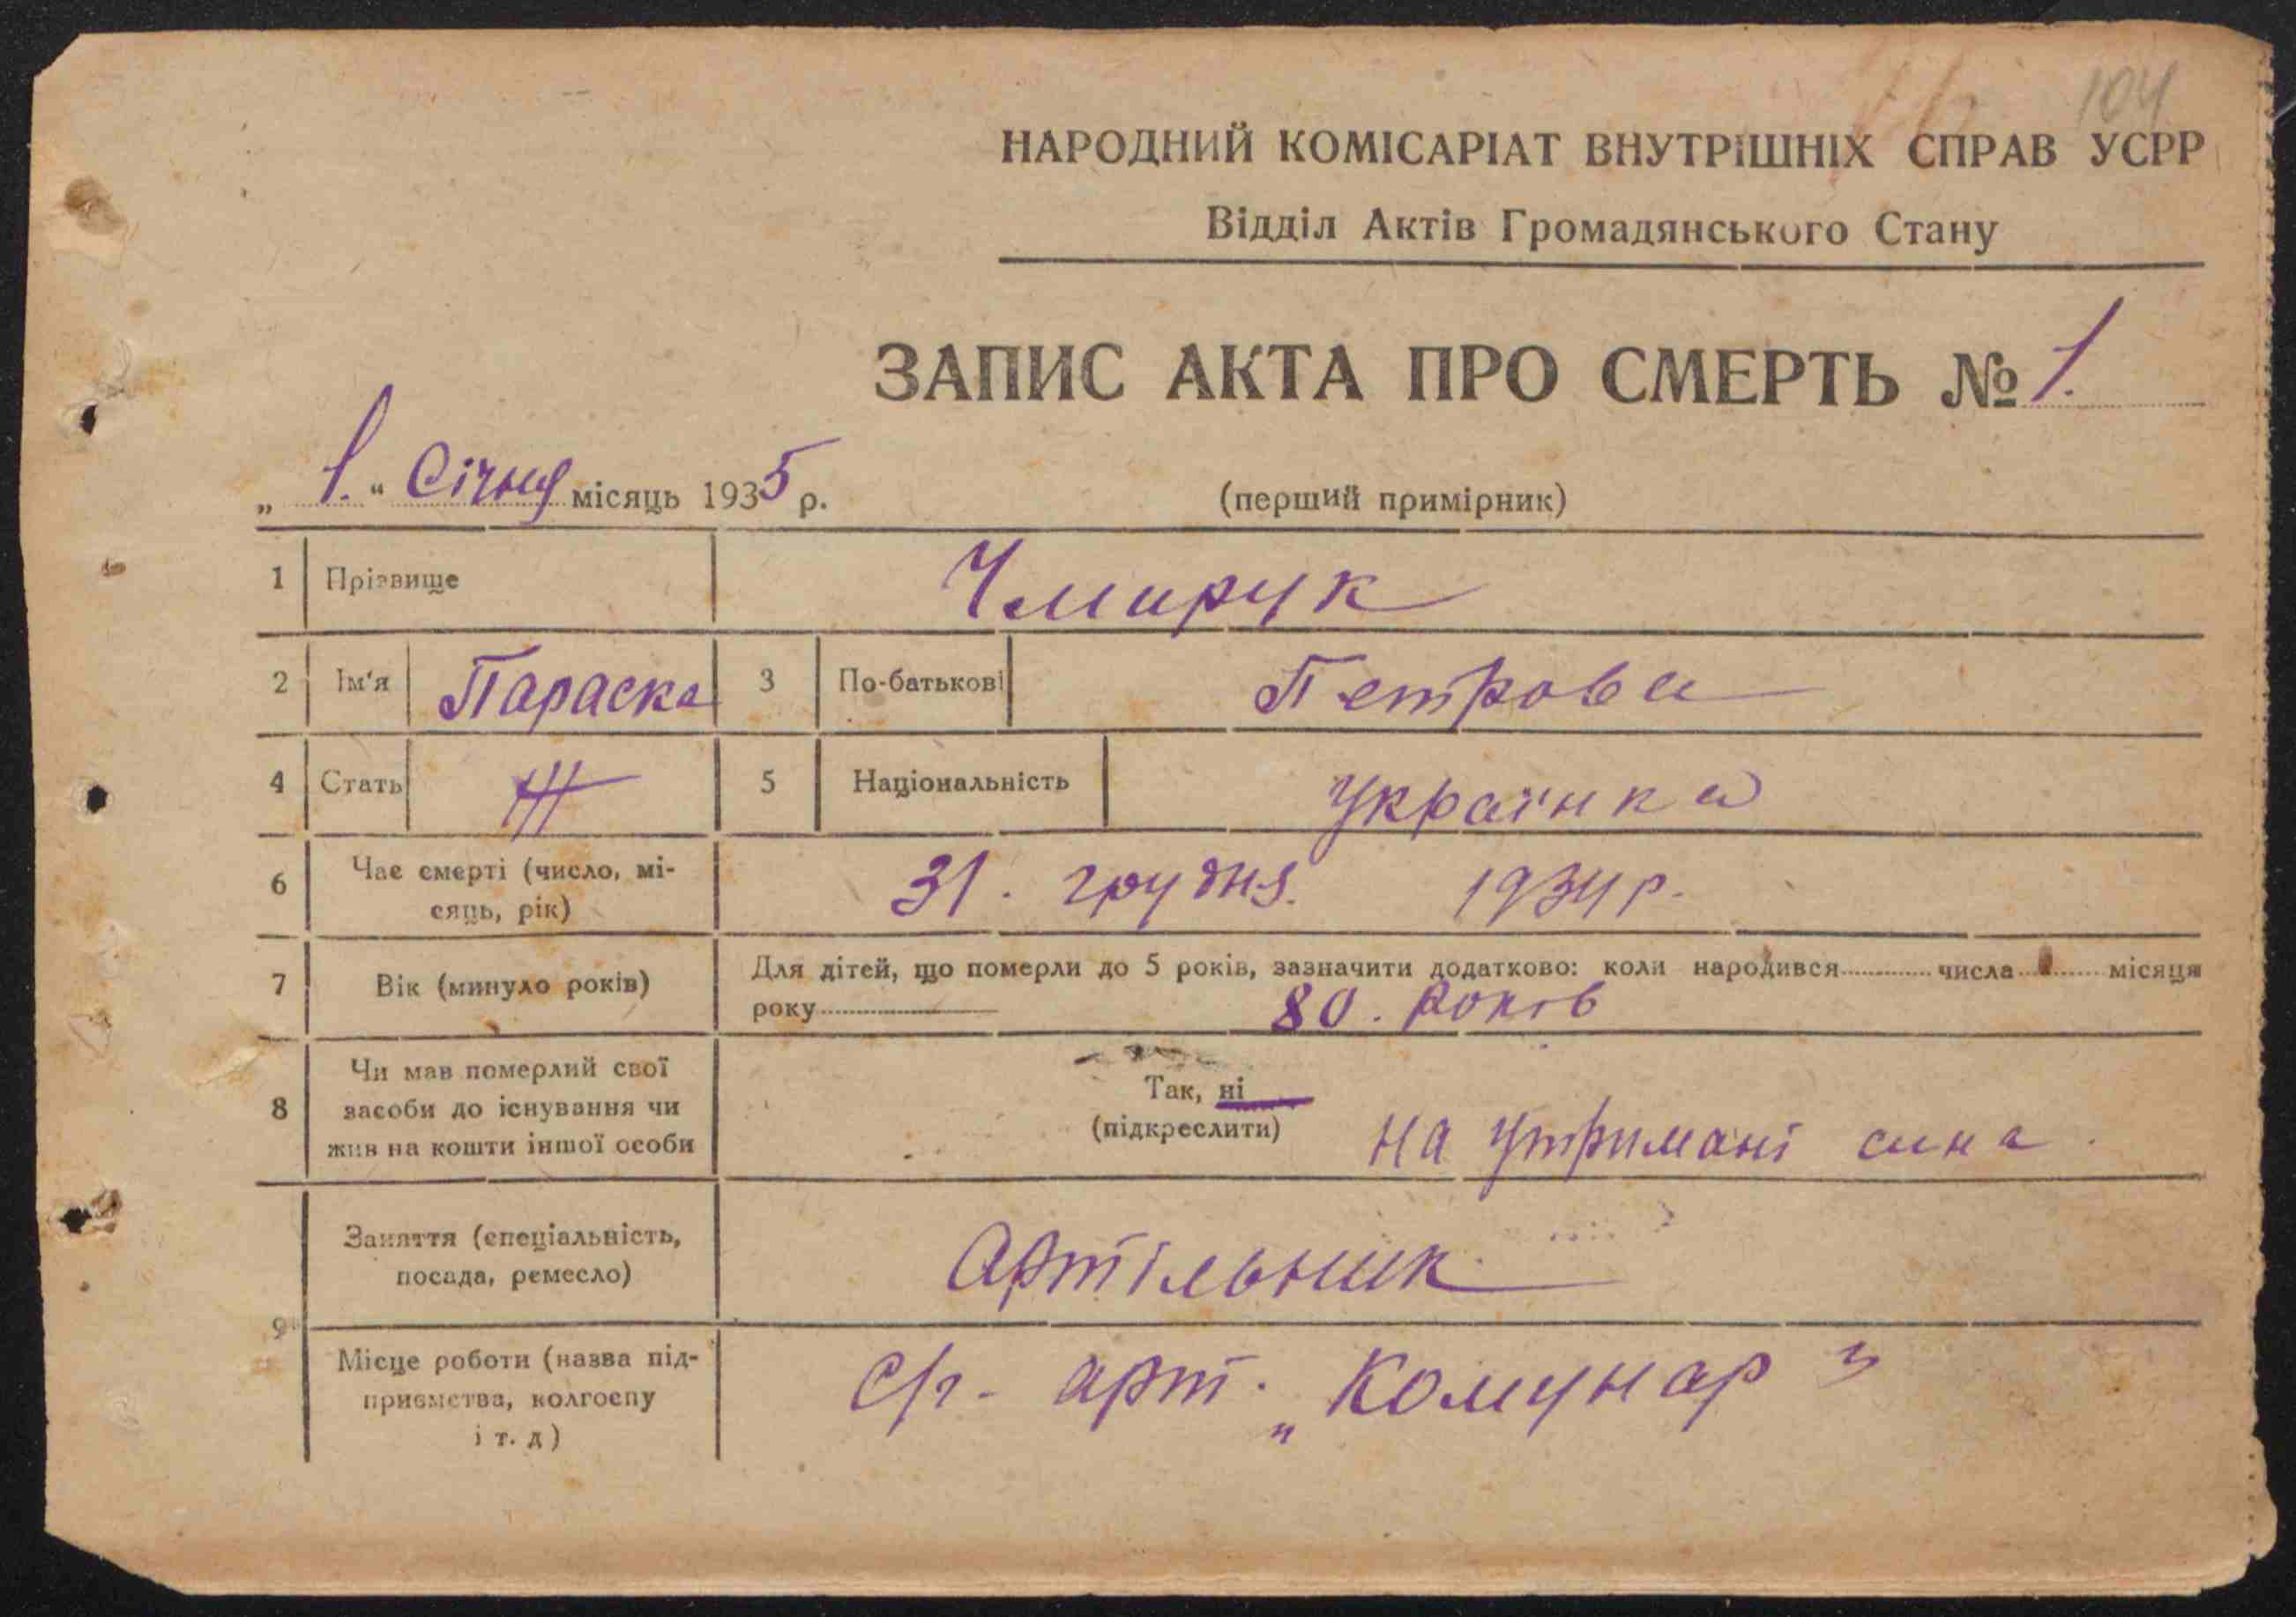 104
НАРОДНИЙ КОМІСАРІАТ ВНУТРІШНІХ СПРАВ УСРР
Відділ Актів Громадянського Стану
ЗАПИС АКТА ПРО СМЕРТЬ № 1.
„ 1. “ Січня місяць 1935 р. (перший примірник)
1 Прізвище Чмирук
2 Ім'я Параска 3 По-батькові Петрова
4 Стать Ж 5 Національність Українка
6 Час смерті (число, мі-
сяць, рік) 31. грудня. 1934 р.
7 Вік (минуло років) Для дітей, що померли до 5 років, зазначити додатково: коли народився числа місяця
року 80. Років
8 Чи мав померлий свої
засоби до існування чи
жив на кошти іншої особи
Так, ні
(підкреслити) На Утримані сина.
9 Заняття (спеціальність,
посада, ремесло) Артільник
Місце роботи (назва під-
приємства, колгоспу
і т. д) С/г. арт. „Комунар"